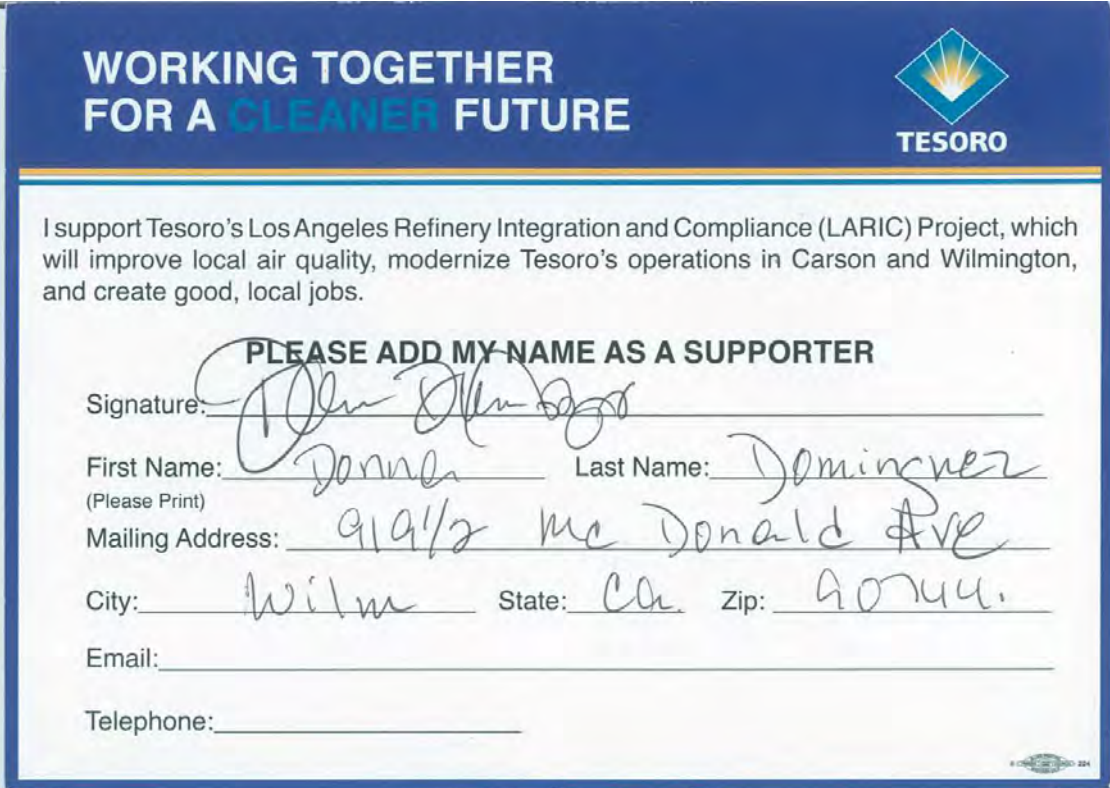 WORKING TOGETHER
FOR A CLEANER FUTURE
TESORO
I support Tesoro's Los Angeles Refinery Integration and Compliance (LARIC) Project, which
will improve local air quality, modernize Tesoro's operations in Carson and Wilmington,
and create good, local jobs.
PLEASE ADD MY NAME AS A SUPPORTER
Signature:
First Name: Donna Last Name: Dominguez
(Please Print)
Mailing Address: 919 1/2 Mc Donald Ave
City: Wilm State: Ca. Zip: 90744.
Email:
Telephone:
224